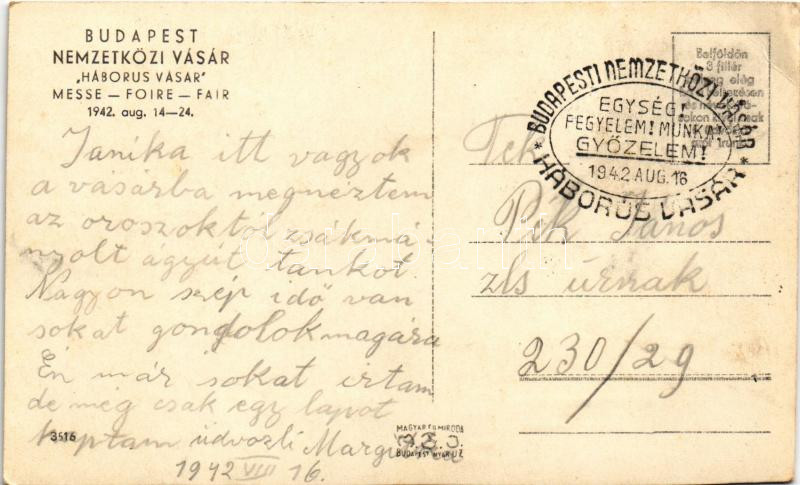 BUDAPEST
NEMZETKÖZI VÁSÁR
„HÁBORUS VÁSÁR"
MESSE — FOIRE — FAIR
1942. aug. 14—24.
Janika itt vagyok
a vásárba megnéztem
az oroszoktol zsákmá-
nyolt ágyút tankot.
Nagyon szép idő van
sokat gondolok magára
Én már sokat irtam
de még csak egy lapot
kaptam üdvözli
1942 VIII 16.
3516
MAGYAR FILMIRODA
BUDAPEST
BUDAPESTI NEMZETKÖZI VÁSÁR
EGYSÉG!
FEGYELEM! MUNKA!
GYŐZELEM!
1942 AUG. 16
* HÁBORÚS VÁSÁR *
Belföldön
3 fillér
Tek
Pék János
zls úrnak
230/29